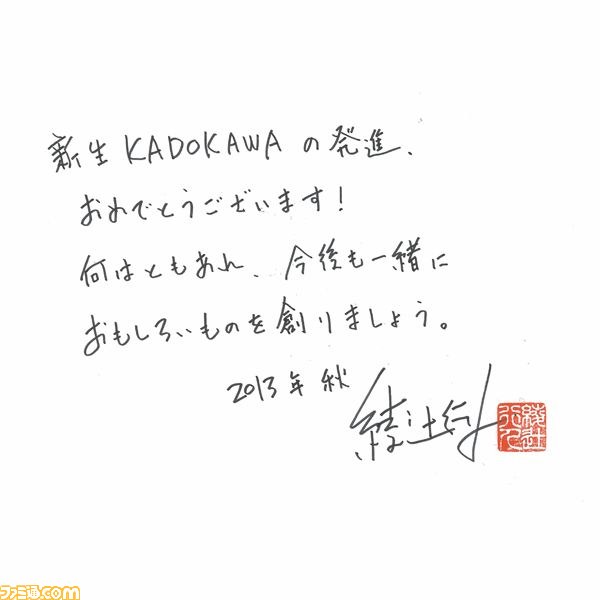 新生KADOKAWAの発進、
おめでとうございます!
何はともあれ、今後も一緒に
おもしろいものを創りましょう。
2013年 秋
綾辻行人
綾辻行人
ファミ通.com